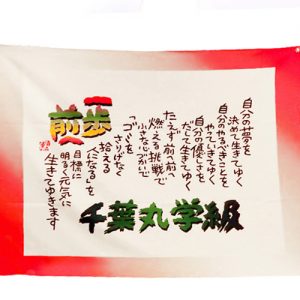 一歩
前へ
自分の夢を
決めて生きてゆく
自分のやるべきことを
やって生きてゆく
自分の優しさを
だして生きてゆく
たえず前へ前へ
燃える挑戦で
小さな心づかいで
「ゴミを
さりげなく
拾える
人になる」を
目標に
明るく元気に
生きてゆきます
千葉丸学級